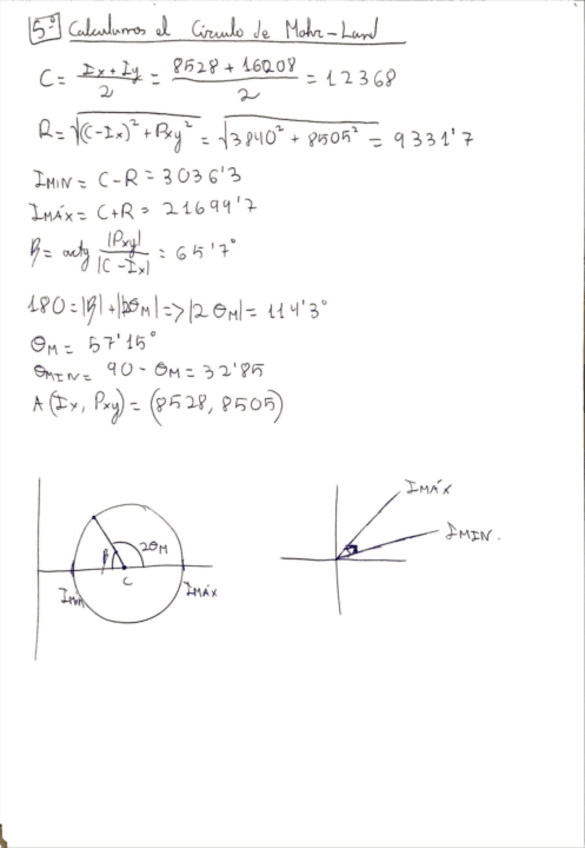 5º Calculamos el Círculo de Mohr-Land
C = Ix + Iy / 2 = 8528 + 16208 / 2 = 12368
R = √(C-Ix)² + Pxy² = √3840² + 8505² = 9331'7
IMIN = C-R = 3036'3
IMÁX = C+R = 21699'7
β = arctg |Pxy| / |C-Ix| = 65'7°
180 = |β| + |2θM| => |2θM| = 114'3°
θM = 57'15°
θMIN = 90 - θM = 32'85
A (Ix, Pxy) = (8528, 8505)
IMÁX
IMIN.
β 2θM
C
IMIN IMÁX